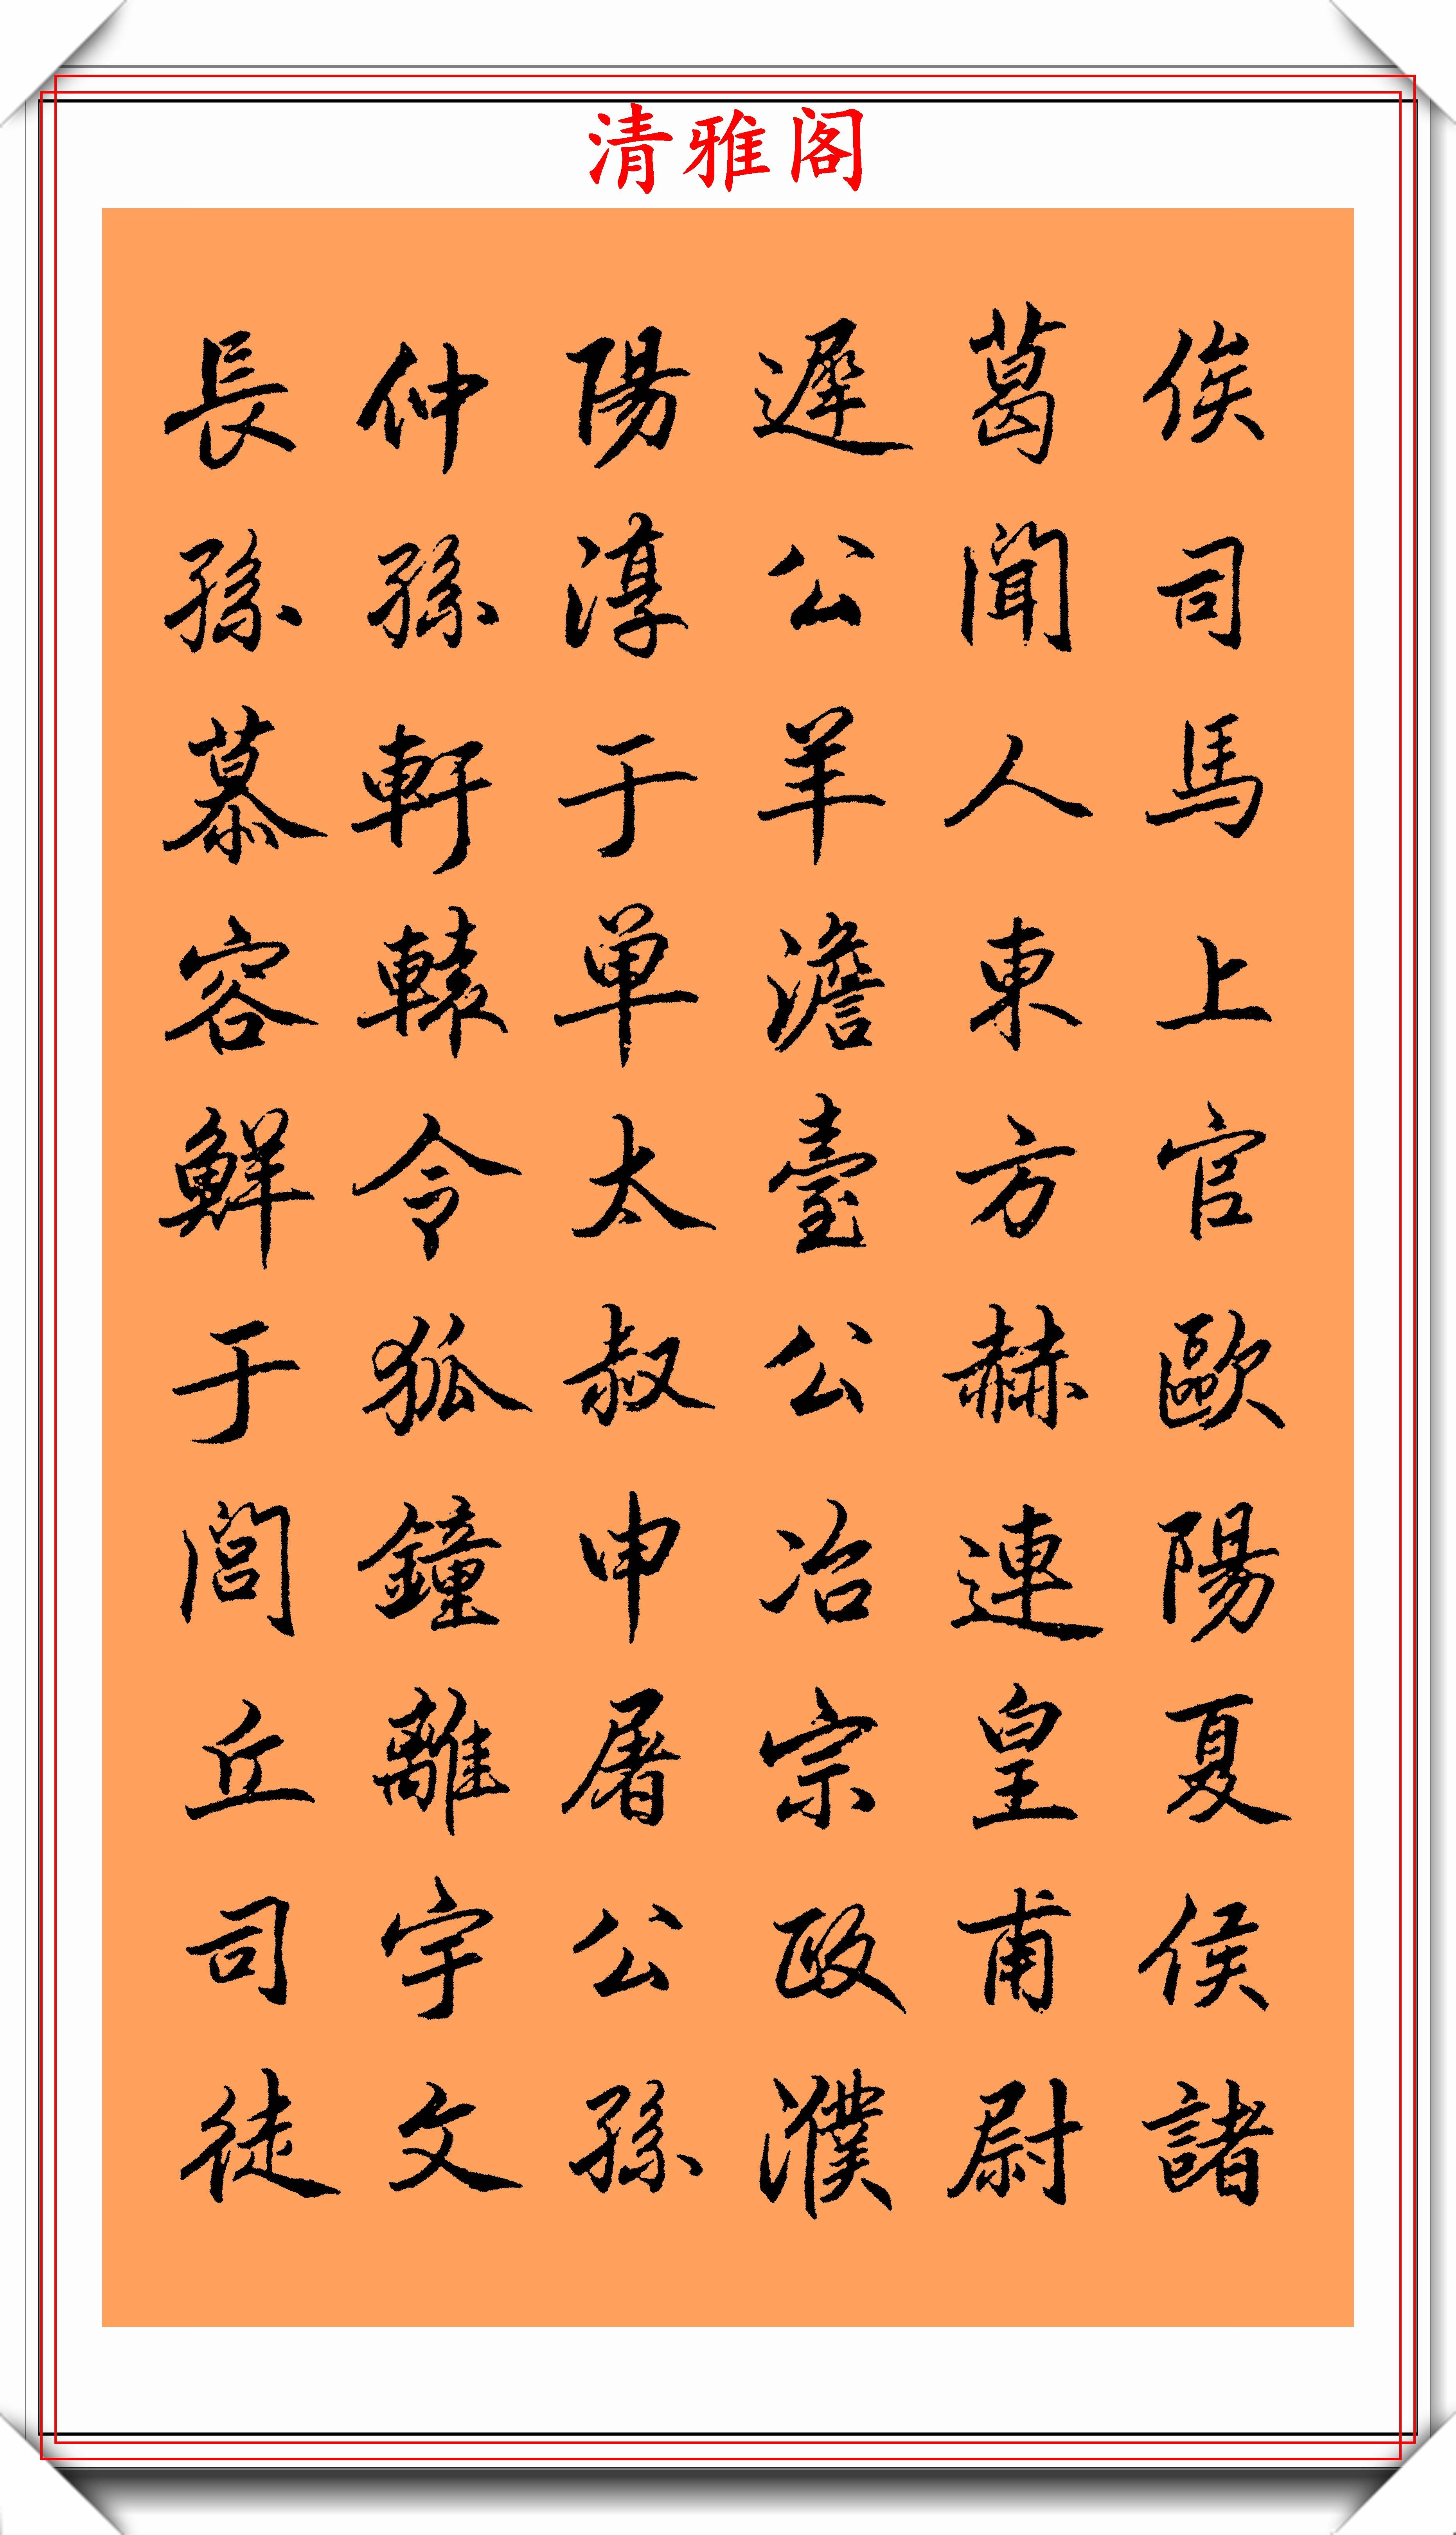 清雅阁
俟司馬上官歐陽夏侯諸
葛聞人東方赫連皇甫尉
遲公羊澹臺公冶宗政濮
陽淳于单太叔申屠公孫
仲孫軒轅令狐鐘離宇文
長孫慕容鮮于閭丘司徒